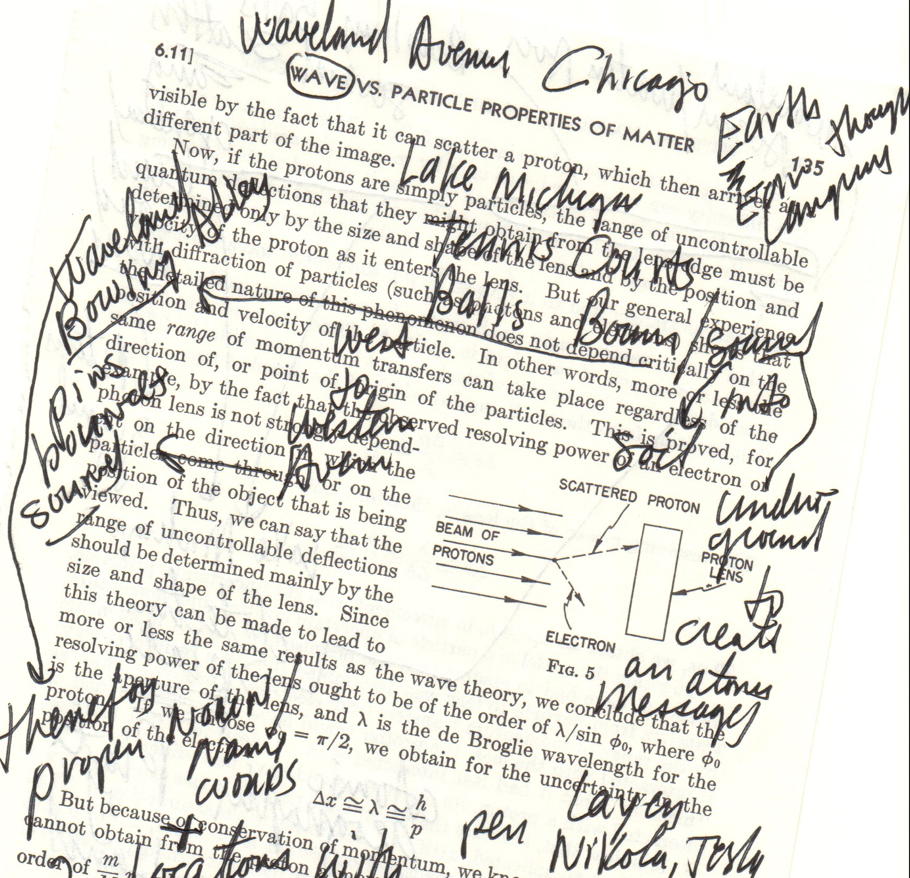 Waveland Avenue Chicago
6.11]
WAVE VS. PARTICLE PROPERTIES OF MATTER
135
Earth though
Languages
visible by the fact that it can scatter a proton, which then arrives
different part of the image.
Lake Michigan
Now, if the protons are simply particles, the range of uncontrollable
quantum deflections that they might obtain from the lens edge must be
determined only by the size and shape of the lens and by the position and
velocity of the proton as it enters the lens. But our general experience
with diffraction of particles (such as photons and electrons) shows that
the detailed nature of this phenomenon does not depend critically on the
position and velocity of the particle. In other words, more or less the
same range of momentum transfers can take place regardless of the
direction of, or point of origin of the particles. This is proved, for
example, by the fact that the observed resolving power of an electron or
photon lens is not strongly depend-
ent on the direction in which the
particles come through or on the
position of the object that is being
viewed. Thus, we can say that the
range of uncontrollable deflections
should be determined mainly by the
size and shape of the lens. Since
this theory can be made to lead to
more or less the same results as the wave theory, we conclude that the
resolving power of the lens ought to be of the order of λ/sin φ₀, where φ₀
is the aperture of the lens, and λ is the de Broglie wavelength for the
proton. If we choose φ₀ = π/2, we obtain for the uncertainty in the
position of the electron
Δx ≅ λ ≅ h/p
But because of conservation of momentum, we
cannot obtain from the proton a
order of m
Waveland
Bowling Alley
pins
sound
Tennis Courts
Balls Bounce/sound
into
soil
under
ground
to
create
an atomic
Messages
West
to
Western
Avenue
SCATTERED PROTON
BEAM OF
PROTONS
PROTON
LENS
ELECTRON
FIG. 5
therefor
proper Noun/
Name
words
+
locations with
pen
Layer
Nikola, Tesla